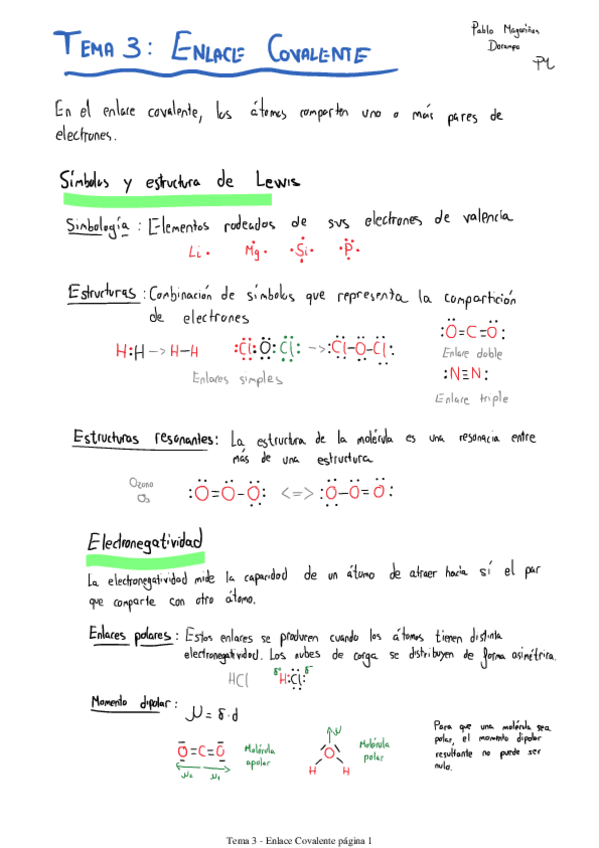 Pablo Magariños
Docampo
TEMA 3: ENLACE COVALENTE
En el enlace covalente, los átomos comparten uno o más pares de
electrones.
Símbolos y estructura de Lewis
Simbología: Elementos rodeados de sus electrones de valencia
Li· Mg Si P
Estructuras: Combinación de símbolos que representa la compartición
de electrones
H:H -> H-H :Cl:O:Cl: -> :Cl-O-Cl:
Enlaces simples
:O=C=O:
Enlace doble
:N≡N:
Enlace triple
Estructuras resonantes: La estructura de la molécula es una resonacia entre
más de una estructura
Ozono
O₃
:O=O-O: <=> :O-O=O:
Electronegatividad
La electronegatividad mide la capacidad de un átomo de atraer hacia sí el par
que comparte con otro átomo.
Enlaces polares: Estos enlaces se producen cuando los átomos tienen distinta
electronegatividad. Los nubes de carga se distribuyen de forma asimétrica.
HCl δ+ H:Cl: δ-
Momento dipolar:
μ = δ·d
O=C=O
μ₂ μ₁
Molécula
apolar
μ
O
H H
Molécula
polar
Para que una molécula sea
polar, el momento dipolar
resultante no puede ser
nulo.
Tema 3 - Enlace Covalente página 1